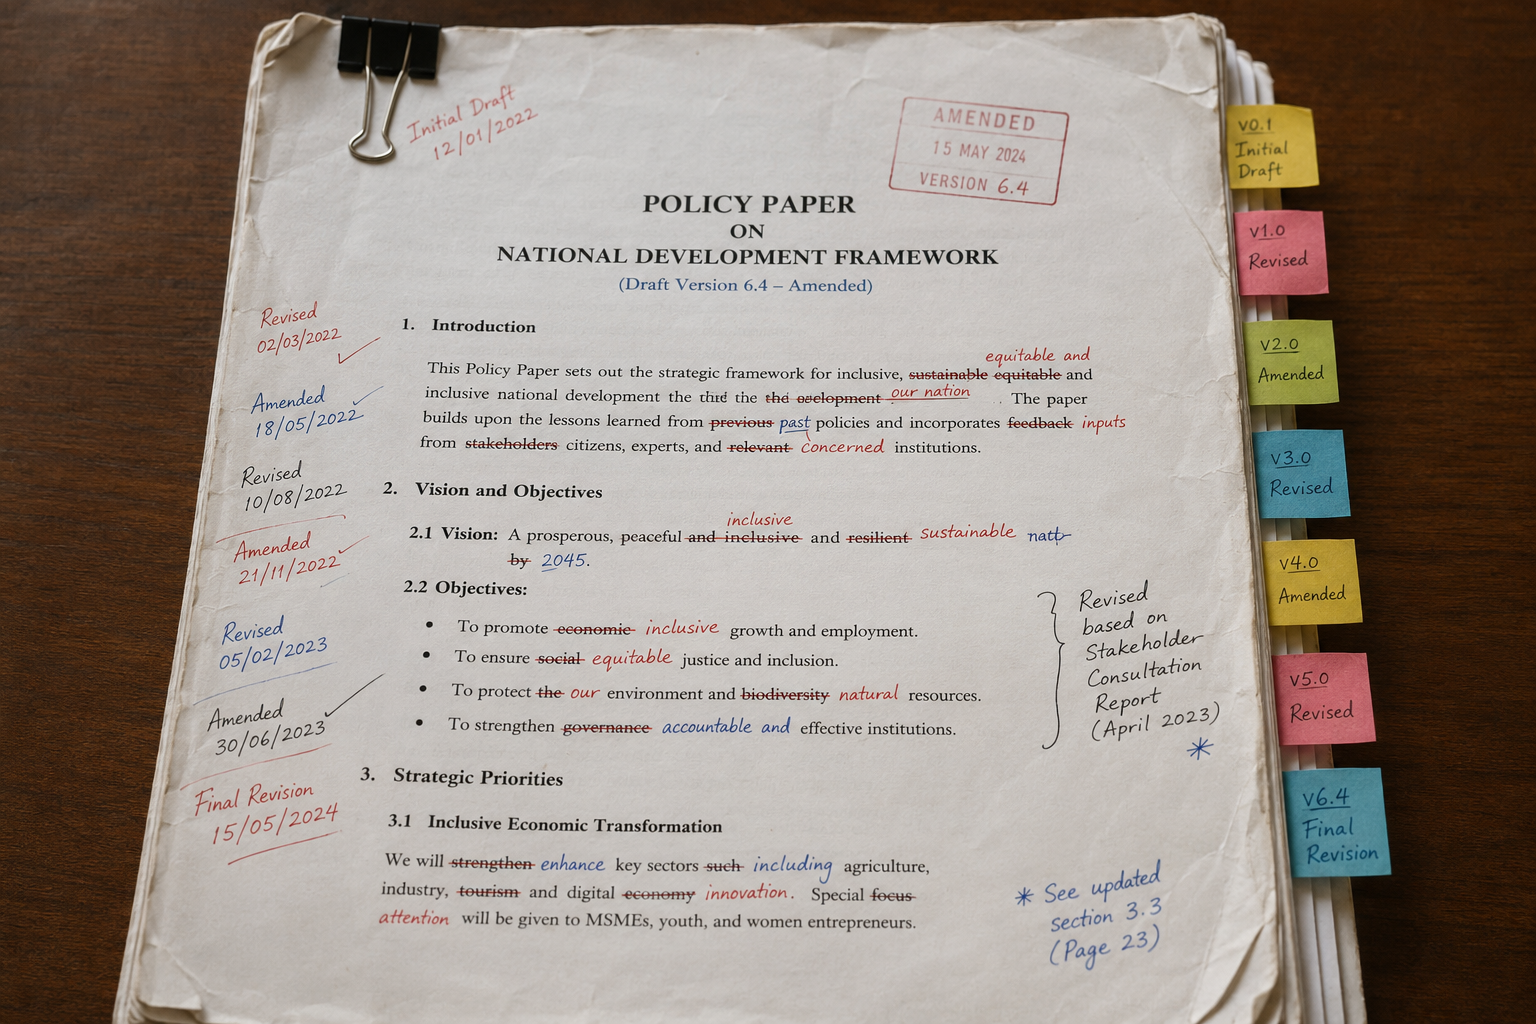 Initial Draft
12/01/2022
AMENDED
15 MAY 2024
VERSION 6.4
POLICY PAPER
ON
NATIONAL DEVELOPMENT FRAMEWORK
(Draft Version 6.4 – Amended)
Revised
02/03/2022
Amended
18/05/2022
Revised
10/08/2022
Amended
21/11/2022
Revised
05/02/2023
Amended
30/06/2023
Final Revision
15/05/2024
1. Introduction
equitable and
This Policy Paper sets out the strategic framework for inclusive, sustainable equitable and
inclusive national development the the the our nation . The paper
builds upon the lessons learned from previous past policies and incorporates feedback inputs
from stakeholders citizens, experts, and relevant concerned institutions.
2. Vision and Objectives
inclusive
2.1 Vision: A prosperous, peaceful and inclusive and resilient sustainable
by 2045.
2.2 Objectives:
• To promote economic inclusive growth and employment.
• To ensure social equitable justice and inclusion.
• To protect the our environment and biodiversity natural resources.
• To strengthen governance accountable and effective institutions.
Revised
based on
Stakeholder
Consultation
Report
(April 2023)
*
3. Strategic Priorities
3.1 Inclusive Economic Transformation
We will strengthen enhance key sectors such including agriculture,
industry, tourism and digital economy innovation. Special focus
attention will be given to MSMEs, youth, and women entrepreneurs.
* See updated
section 3.3
(Page 23)
v0.1
Initial
Draft
v1.0
Revised
v2.0
Amended
v3.0
Revised
v4.0
Amended
v5.0
Revised
v6.4
Final
Revision